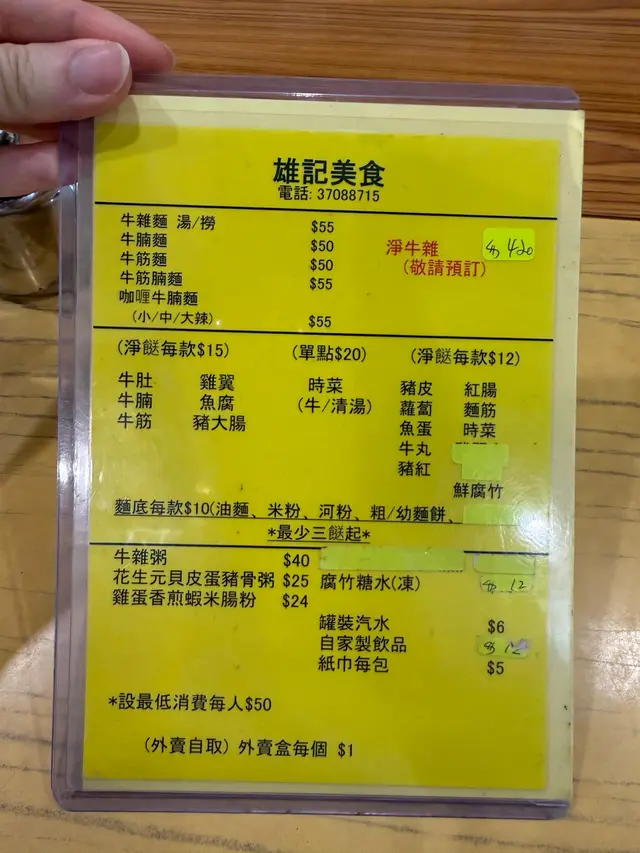 雄記美食
電話: 37088715
牛雜麵 湯/撈 $55
牛腩麵 $50
牛筋麵 $50
牛筋腩麵 $55
咖喱牛腩麵
(小/中/大辣) $55
淨牛雜 $420
(敬請預訂)
(淨餸每款$15) (單點$20) (淨餸每款$12)
牛肚 雞翼 時菜 豬皮 紅腸
牛腩 魚腐 (牛/清湯)蘿蔔 麵筋
牛筋 豬大腸 魚蛋 時菜
牛丸
豬紅
鮮腐竹
麵底每款$10(油麵、米粉、河粉、粗/幼麵餅、
*最少三餸起*
牛雜粥 $40
花生元貝皮蛋豬骨粥 $25 腐竹糖水(凍) $12
雞蛋香煎蝦米腸粉 $24
罐裝汽水 $6
自家製飲品
紙巾每包 $5
*設最低消費每人$50
(外賣自取) 外賣盒每個 $1